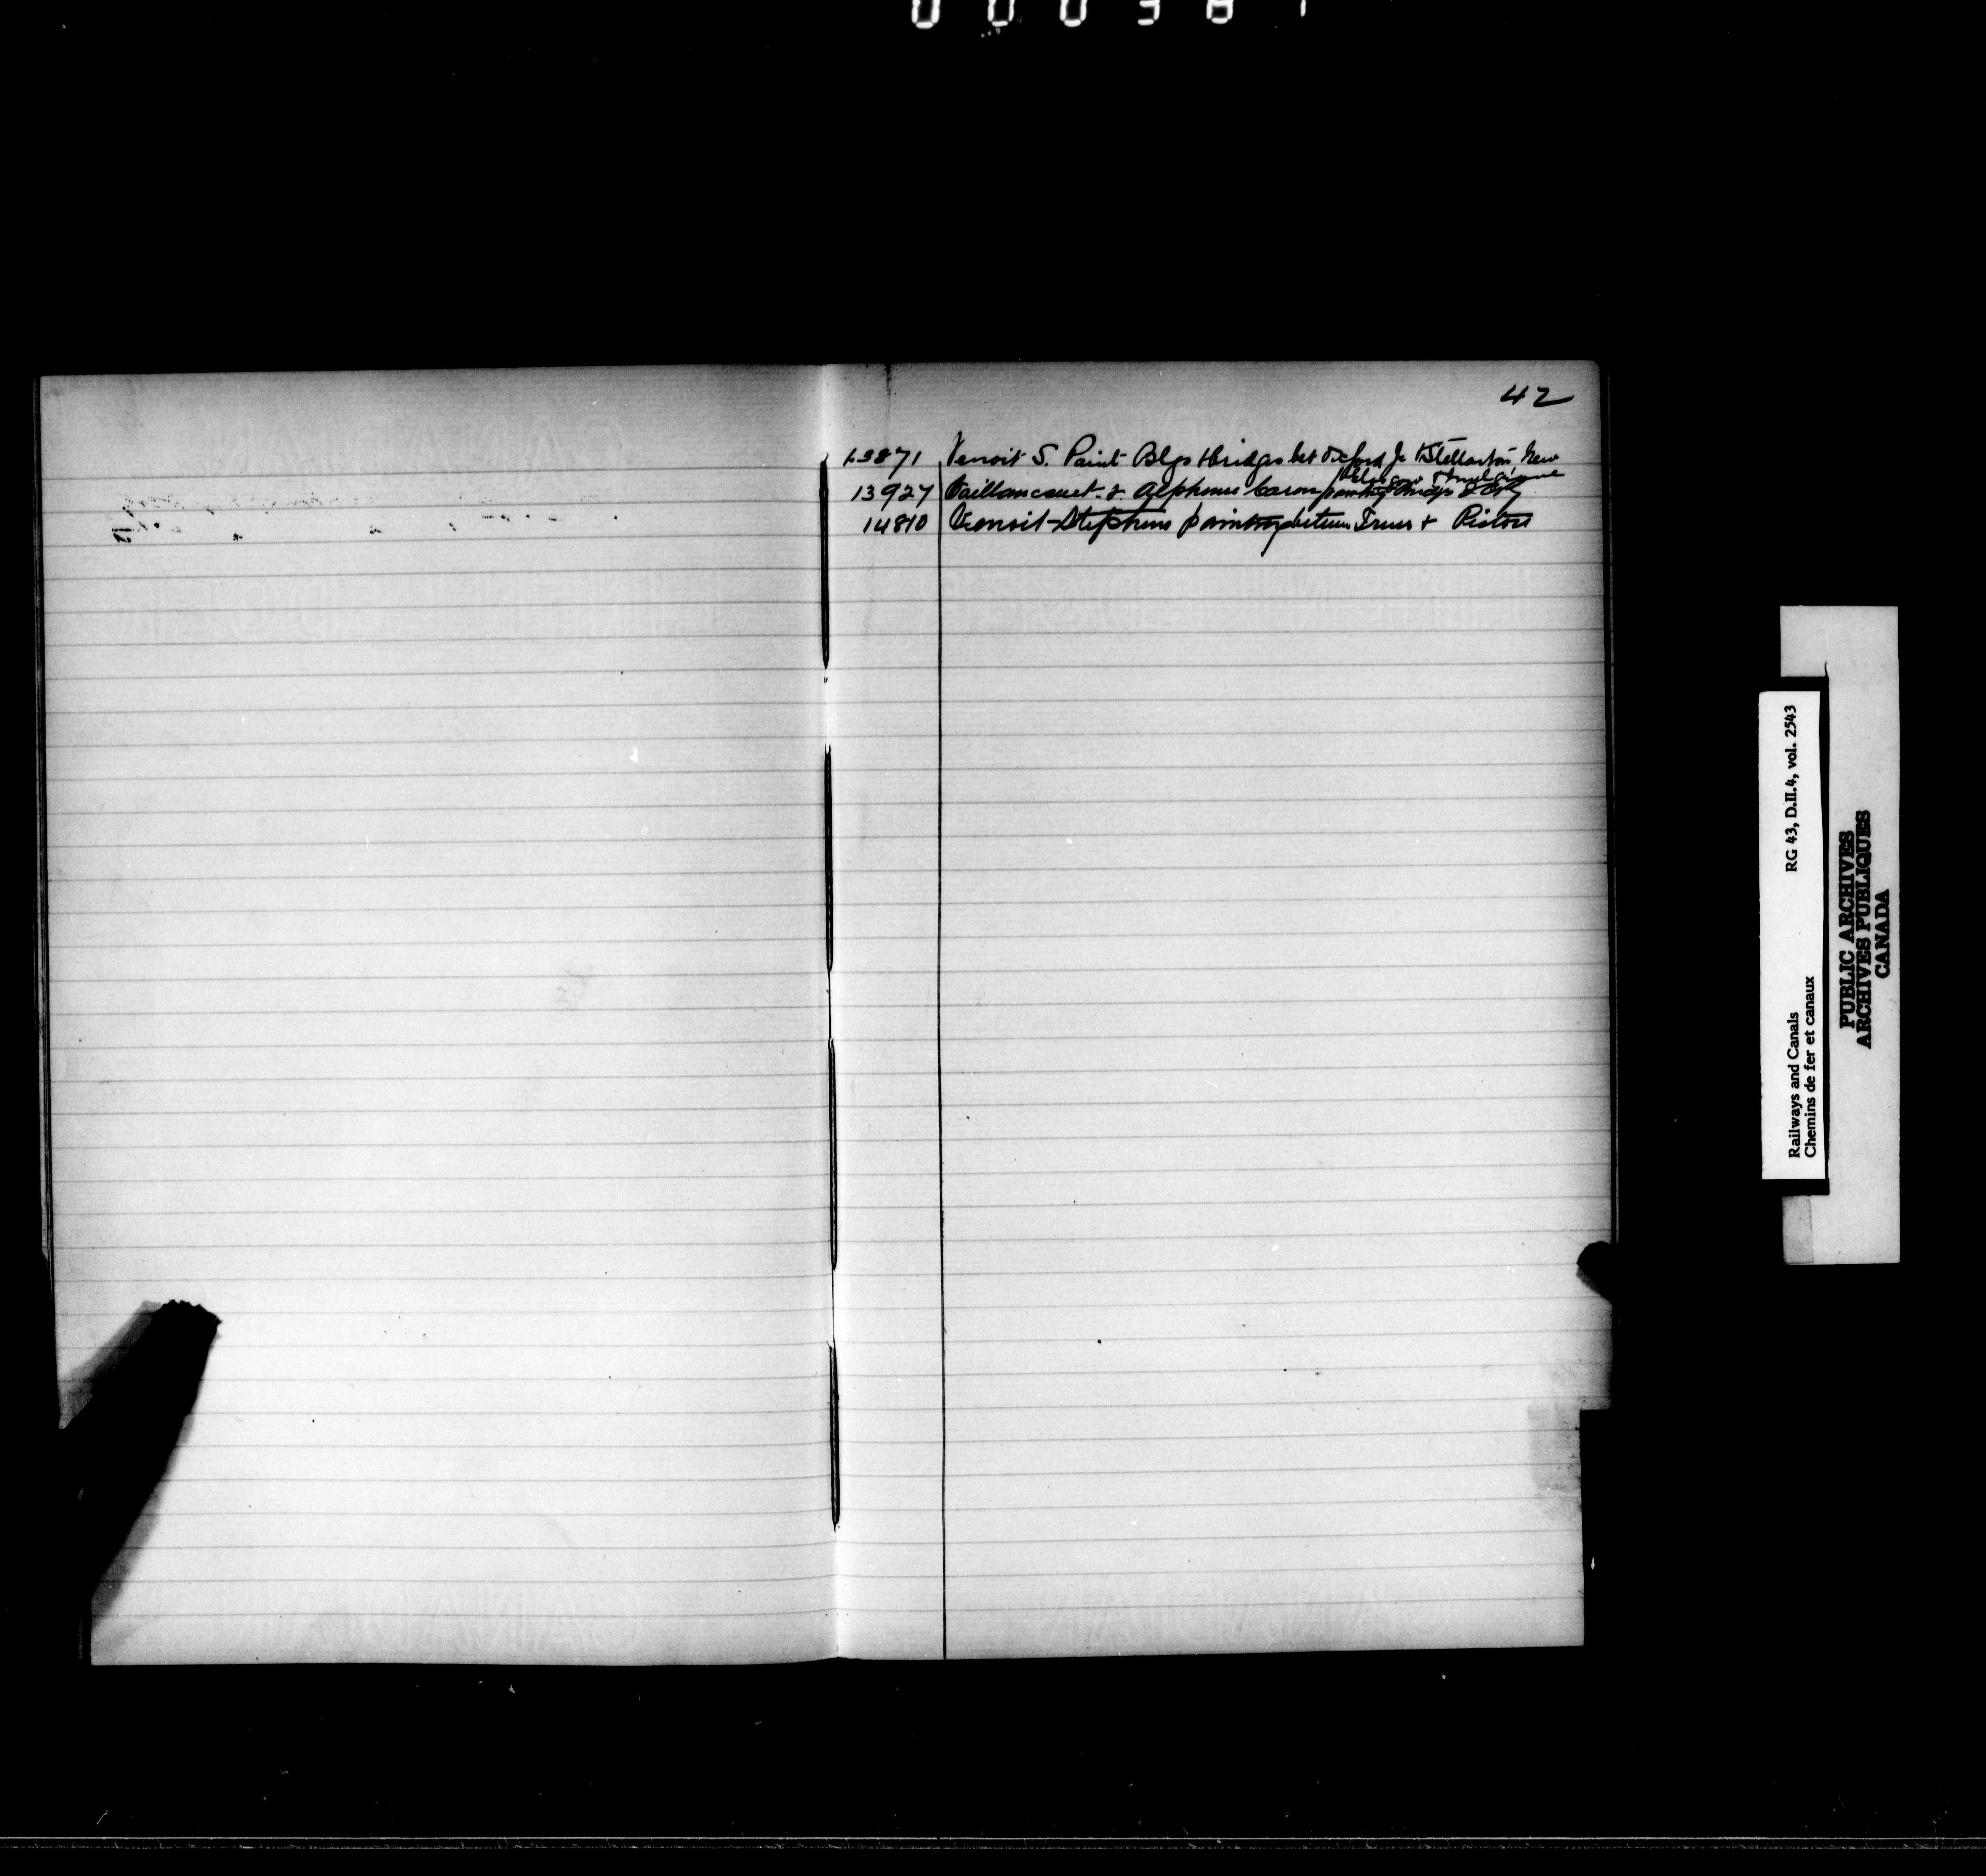 42
13871 Venoit S. Paint Blgs & bridges bet Oxford Jc & Stellarton, New
Glasgow & Mulgrave
13927 Vaillancourt & Alphonse Caron painting bridges
14810 Venoit Stephens painting between Truro & Pictou
Railways and Canals RG 43, D.II.4, vol. 2543
Chemins de fer et canaux
PUBLIC ARCHIVES
ARCHIVES PUBLIQUES
CANADA